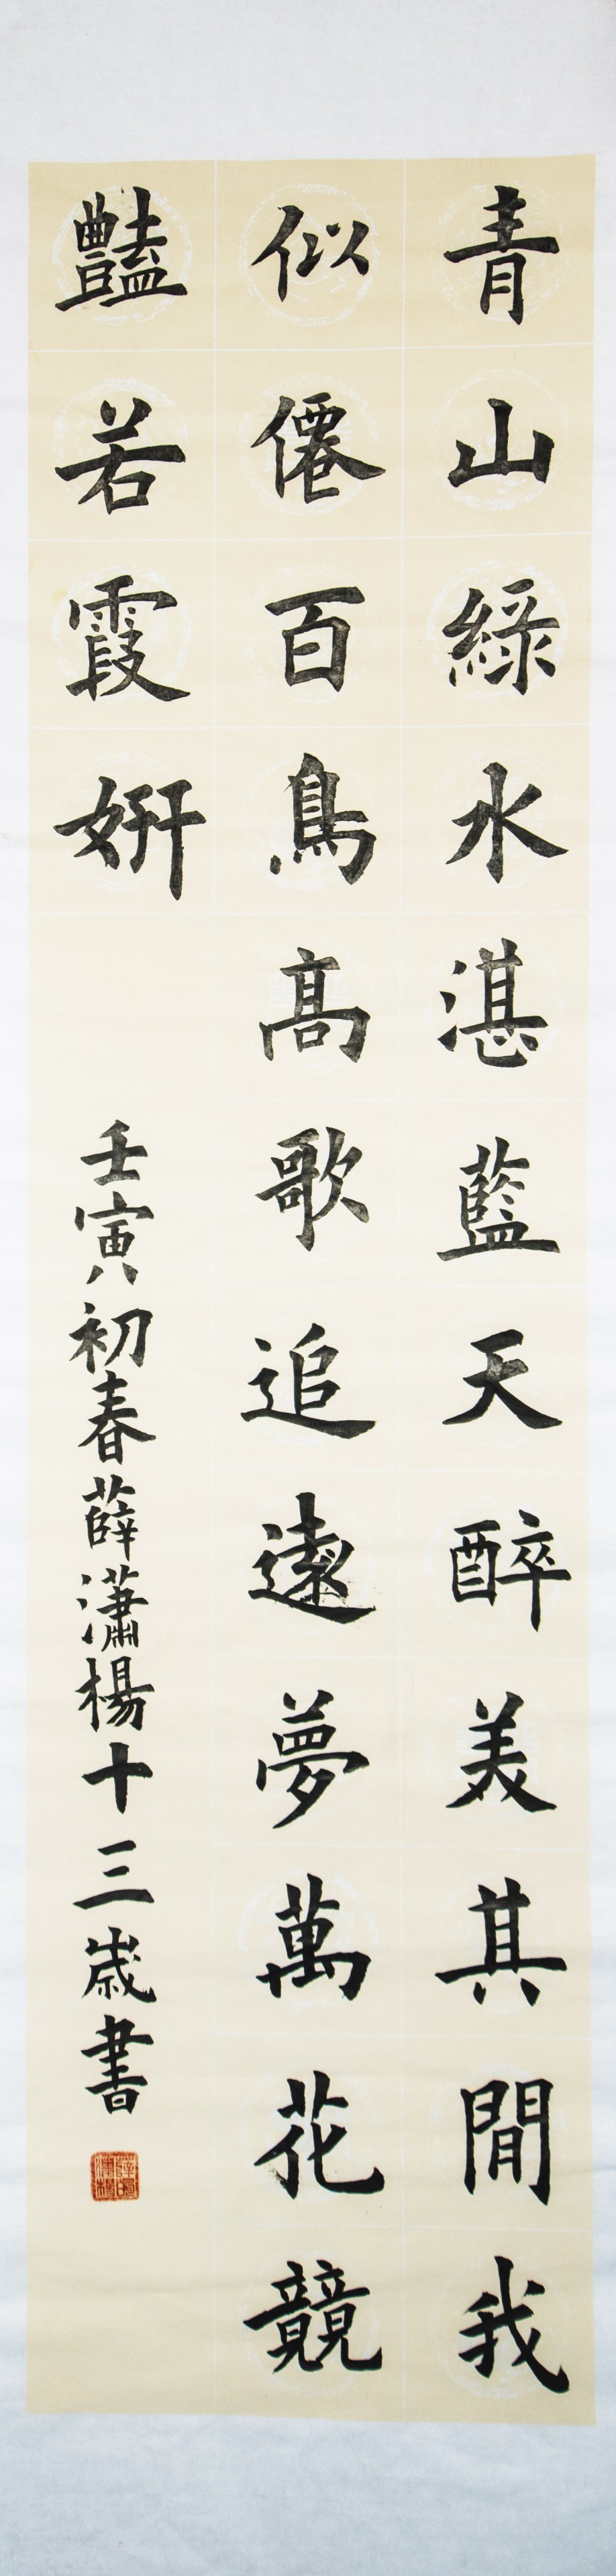 青山綠水湛藍天醉美其間我
似僊百鳥高歌追逺夢萬花競
豔若霞妍
壬寅初春薛瀟楊十三歲書